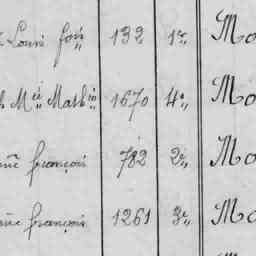 Louis fois 132 1re Mo
Mie Mathi 1670 4e Mo
françois 782 2e Mo
françois 1261 3e Mo